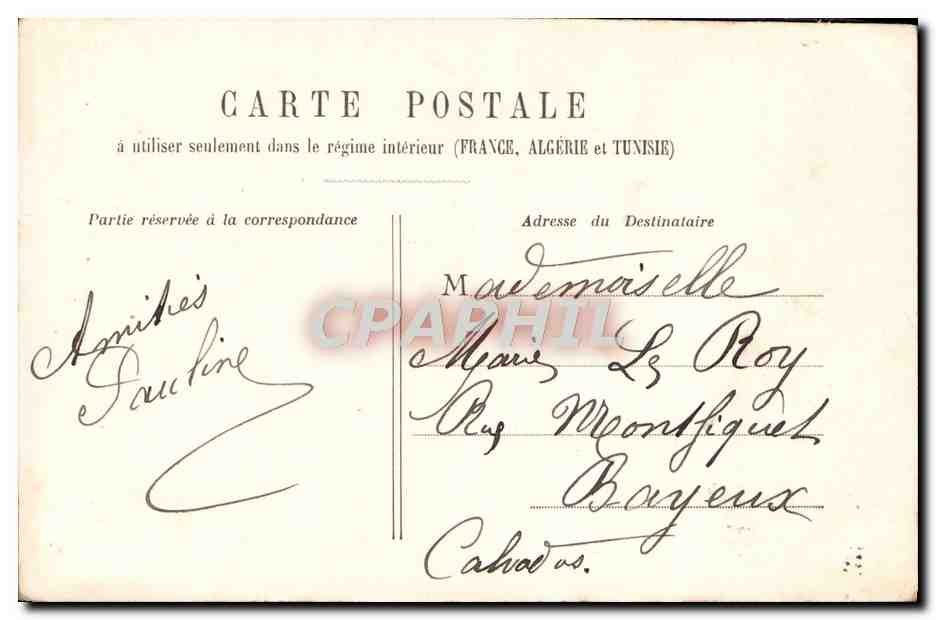 CARTE POSTALE
à utiliser seulement dans le régime intérieur (FRANCE, ALGÉRIE et TUNISIE)
Partie réservée à la correspondance
Amitiés
Pauline
Adresse du Destinataire
Mademoiselle
Marie Le Roy
Rue Montfiquet
Bayeux
Calvados.
CPAPHIL